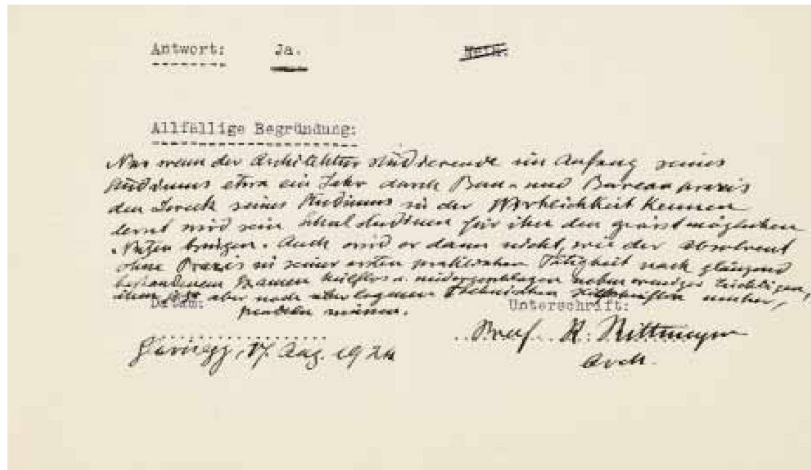 Antwort: Ja. Nein.
Allfällige Begründung:
Nur wenn der Architektur studierende im Anfang seines
Studiums etwa ein Jahr durch Bau- und Bureaupraxis
den Zweck seines Studiums in der Wirklichkeit kennen
lernt wird sein Schulstudium für ihn den grösstmöglichen
Nutzen bringen. Auch wird er dann nicht, wie der absolvent
ohne Praxis in seiner ersten praktischen Tätigkeit nach glänzend
bestandenem Examen hilflos u. niedergeschlagen neben weniger tüchtigen,
aber noch überlegenen technischen Hilfskräften umher,
müssen.
Datum: Unterschrift:
17. Aug. 192
Prof. H. Rittmeyer
Arch.